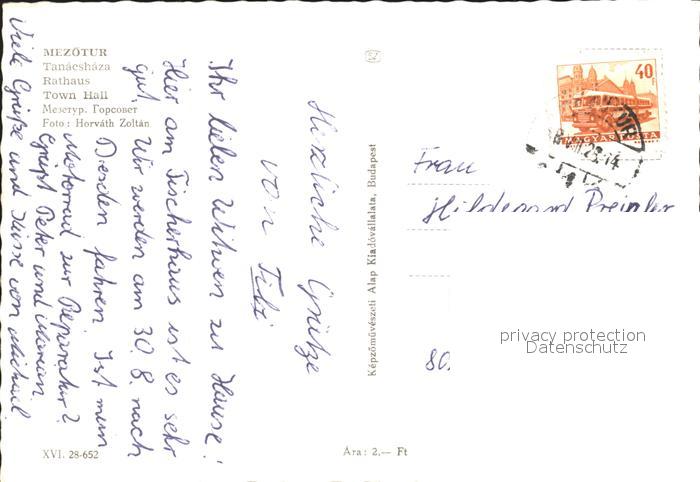 MEZŐTUR
Tanácsháza
Rathaus
Town Hall
Мезетур. Горсовет
Foto: Horváth Zoltán
Ihr lieben Witwen zu Hause!
Hier am Fischerhaus ist es sehr
gut. Wir werden am 30. 8. nach
Dresden fahren. Ist mein
Motorrad zur Reparatur?
Grüßt Peter und
Viele Grüße und Küsse von Michael
Herzliche Grüße
von Tibi
XVI. 28-652
Képzőművészeti Alap Kiadóvállalata, Budapest
Ára: 2,— Ft
40f
MAGYAR POSTA
Frau
Hildegard
80
privacy protection
Datenschutz